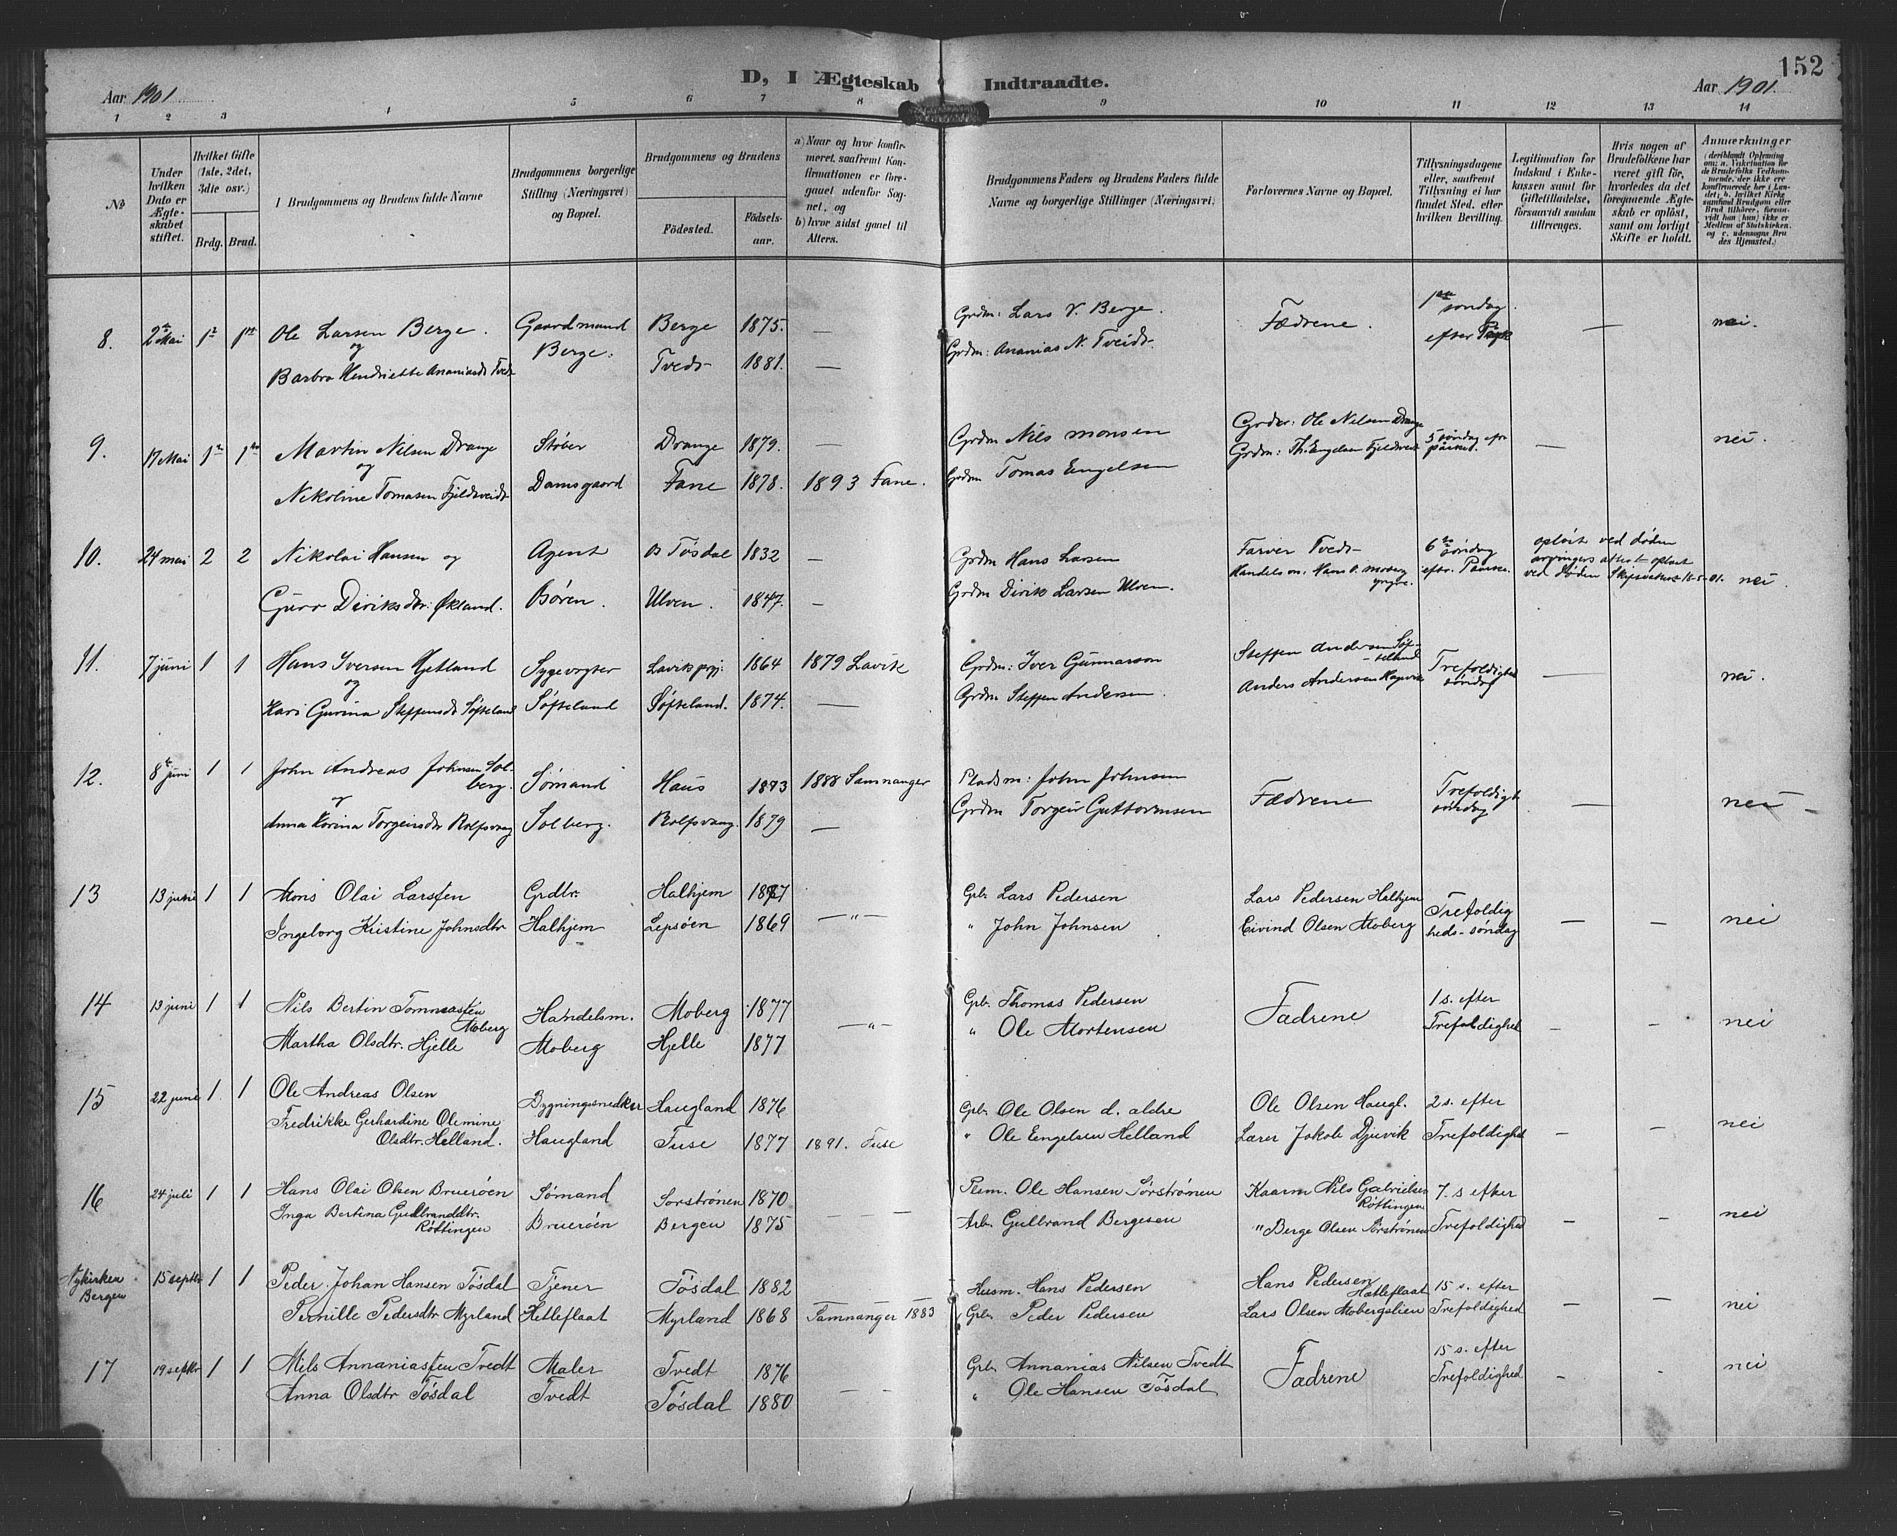 152
D, I Ægteskab Indtraadte.
Aar 1901
Aar 1901.
1 2 3 4 5 6 7 8 9 10 11 12 13 14
No
Under hvilken Dato er Ægteskabet stiftet.
Hvilket Gifte (1ste, 2det, 3die osv.)
Brdg. Brud.
Brudgommens og Brudens fulde Navne
Brudgommens borgerlige Stilling (Næringsvei) og Bopæl.
Brudgommens og Brudens
Födested. Födselsaar.
a) Naar og hvor konfirmeret, saafremt Konfirmationen er foregaaet udenfor Sognet, og
b) hvor sidst gaaet til Alters.
Brudgommens Faders og Brudens Faders fulde Navne og borgerlige Stillinger (Næringsvei).
Forlovernes Navne og Bopæl.
Tillysningsdagene eller, saafremt Tillysning ei har fundet Sted, efter hvilken Bevilling.
Legitimation for Indskud i Enkekassen samt for Giftetilladelse, forsaavidt saadan tiltrænges.
Hvis nogen af Brudefolkene har været gift för, hvorledes da det foregaaende Ægteskab er oplöst, samt om lovligt Skifte er holdt.
Anmærkninger
(deriblandt Oplysning om: a. Vakcination for Brudefolks Vedkommende, der ikke ere konfirmerede her i Landet; b. hvilket Kirkesamfund Brudgom eller Brud tilhører, forsaavidt han (hun) ikke er Medlem af Statskirken, og c. udensogns Brudes Hjemsted.)
8. 2den Mai 1ste 1ste Ole Larsen Berge. Gaardmand Berge 1875. — Grdm: Lars V. Berge. Fædrene. 1ste søndag — nei.
og Berge. efter
Barbro Henriette Ananiasdt Tvedt Tvedt 1881. — Grdm: Ananias N. Tveidt.
9. 17 Mai 1ste 1ste Martin Nilsen Drange Støber Drange 1879. — Grdm Nils Monsen Grder: Ole Nilsen Drange 5 søndag efr — nei.
og Grdm: Th. Engelsen Fjeldveidt paaske.
Nekoline Tomasen Fjeldveidt Damsgaard Fane 1878. 1893 Fane. Grdm Tomas Engelsen
10. 24 mai 2 2 Nikolai Hansen og Agent Tøsdal 1832 — Grdm Hans Larsen Farver Tvedt 6te søndag opløst ved døden
Handelsm: Hans O. Moberg yngre. eftr. Paaske. attest opløst ved Døden 18-5-01. nei.
Guro Diriksdtr: Økland. Børen. Ulven. 1847. — Grdm Dirik Larsen Ulven.
11. 7 juni 1 1 Hans Iversen Hetland Sygevogter Lavik pgj: 1864 1879 Lavik Grdm: Iver Gunnarson Steffen Andersen Søfteland Trefoldigheds søndag — nei.
og Anders Andersen
Kari Gurina Steffensdt Søfteland Søfteland Søfteland. 1874. — Grdm Steffen Andersen.
12. 8de juni 1 1 John Andreas Johnsen Solberg. Sømand Haus 1873 1888 Samnanger Pladsm: John Johnsen Fædrene Trefoldigh. søndag — nei —
og
Anna Karina Torgeirsdtr Rolfsvaag Solberg. Rolfsvaag. 1879 — Grdm Torgeir Guttormsen
13 13 juni 1 1 Mons Olai Larssen Grdbr. Halhjem 1877 Grb. Lars Pedersen Lars Pedersen Halhjem Trefoldigheds-søndag — — nei
Ingeborg Kristine Johnsdtr Halhjem Lepsöen 1869 —"— " John Johnsen Eivind Olsen Moberg
14 13 juni 1 1 Nils Bertin Tommassen Moberg Handelsm. Moberg 1877 Grb. Thomas Pedersen Fædrene 1 s. efter Trefoldighed — — nei
Martha Olsdtr. Hjelle Moberg Hjelle 1877 —"— " Ole Mortensen
15 22 juni 1 1 Ole Andreas Olsen Bygningssnedker Haugland 1876 Grb. Ole Olsen d. ældre Ole Olsen Haugl. 2 s. efter Trefoldighed — — nei
Fredrikke Gerhardine Olemine Olsdtr. Helland. Haugland Fuse 1877 1891. Fuse " Ole Engelsen Helland Lærer Jakob Djuvik
16 24 juli 1 1 Hans Olai Olsen Bruerøen Sømand Sørstrønen 1870 Plm. Ole Hansen Sørstrønen Kaarm Nils Gabrielsen Røttingen 7. s efter Trefoldighed — — nei
Inga Bertina Gudbranddtr. Røttingen Bruerøen Bergen 1875 — — Arb. Gulbrand Bergesen " Berge Olsen Sørstrønen
Nykirken Bergen 15 septbr 1 1 Peder Johan Hansen Tøsdal Tjener Tøsdal 1882 Husm. Hans Pedersen Hans Pedersen Hetleflaat 15 s. efter Trefoldighed — — nei
Pernille Pedersdtr Myrland Hetleflaat Myrland 1868 Samnanger 1883 Grb. Peder Pedersen Lars Olsen Mobergslien
17 19 septbr 1 1 Nils Annaniassen Tvedt Maler Tvedt 1876 Grb. Annanias Nilsen Tvedt Fædrene 15 s. efter Trefoldighed — — nei
Anna Olsdtr Tøsdal Tvedt Tøsdal 1880 — — " Ole Hansen Tøsdal